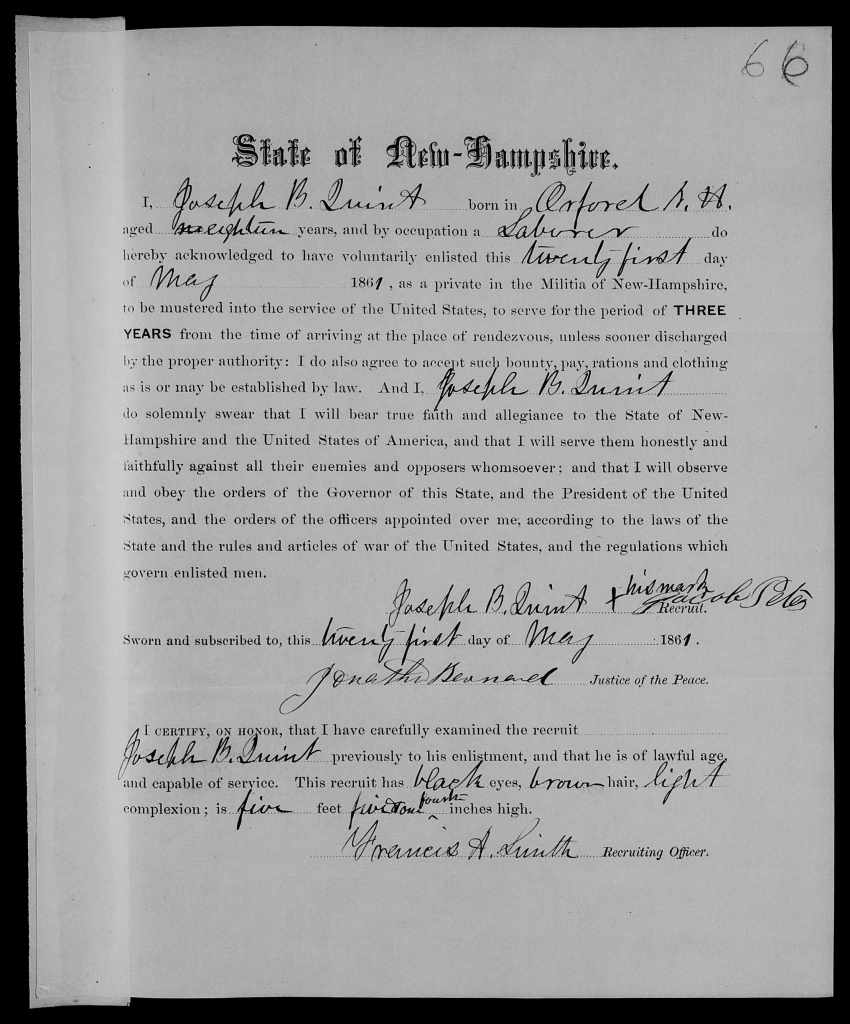 66
State of New-Hampshire.
I, Joseph B. Quint born in Orford N. H.
aged eighteen years, and by occupation a Laborer do
hereby acknowledged to have voluntarily enlisted this twenty first day
of May 1861, as a private in the Militia of New-Hampshire,
to be mustered into the service of the United States, to serve for the period of THREE
YEARS from the time of arriving at the place of rendezvous, unless sooner discharged
by the proper authority: I do also agree to accept such bounty, pay, rations and clothing
as is or may be established by law. And I, Joseph B. Quint
do solemnly swear that I will bear true faith and allegiance to the State of New-
Hampshire and the United States of America, and that I will serve them honestly and
faithfully against all their enemies and opposers whomsoever; and that I will observe
and obey the orders of the Governor of this State, and the President of the United
States, and the orders of the officers appointed over me, according to the laws of the
State and the rules and articles of war of the United States, and the regulations which
govern enlisted men.
Joseph B. Quint + his mark Jacob Peters
Recruit.
Sworn and subscribed to, this twenty first day of May 1861.
Jonathn Barnard Justice of the Peace.
I CERTIFY, ON HONOR, that I have carefully examined the recruit
Joseph B. Quint previously to his enlistment, and that he is of lawful age,
and capable of service. This recruit has black eyes, brown hair, light
complexion; is five feet five & one fourth inches high.
Francis A. Smith Recruiting Officer.